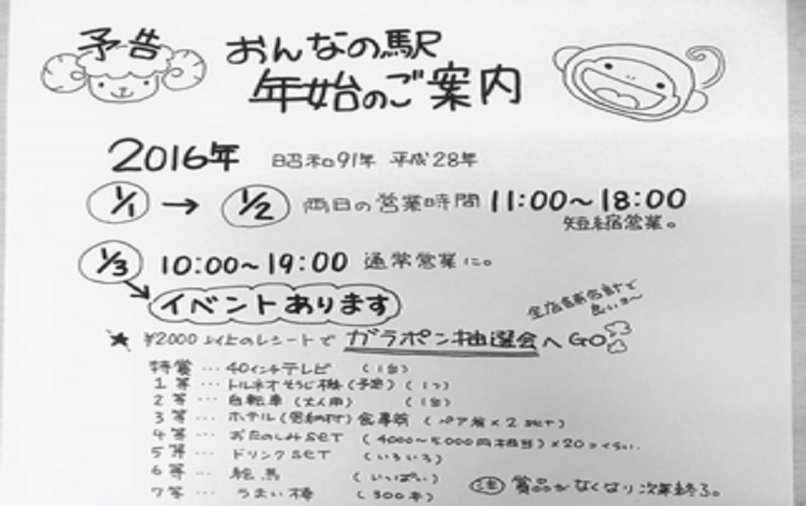 予告
おんなの駅
年始のご案内
2016年 昭和91年 平成28年
1/1 → 1/2 両日の営業時間 11:00〜18:00
短縮営業。
1/3 10:00〜19:00 通常営業に。
イベントあります
全店舗合計で
良いヨ〜
★ ¥2000以上のレシートで ガラポン抽選会へGO
特賞 … 40インチテレビ (1台)
1等 … トルネオそうじ機(予定) (1つ)
2等 … 自転車(大人用) (1台)
3等 … ホテル(恩納村)食事券 (ペア券×2SET)
4等 … おたのしみSET (4000〜5000円相当)×20コくらい
5等 … ドリンクSET (いろいろ)
6等 … 絵馬 (いっぱい)
7等 … うまい棒 (300本)
注 賞品がなくなり次第終了。